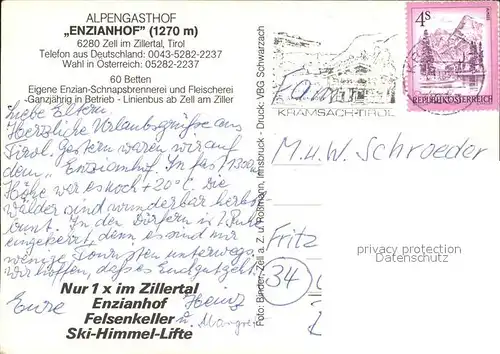 ALPENGASTHOF
„ENZIANHOF" (1270 m)
6280 Zell im Zillertal, Tirol
Telefon aus Deutschland: 0043-5282-2237
Wahl in Österreich: 05282-2237
60 Betten
Eigene Enzian-Schnapsbrennerei und Fleischerei
-Ganzjährig in Betrieb - Linienbus ab Zell am Ziller
Liebe Eltern!
Herzliche Urlaubsgrüße aus
Tirol. Gestern waren wir auf
dem „Enzianhof. In fast 1300m
Höhe war es noch +20°C. Die
Wälder sind wunderbar herbst-
bunt. In den Dörfern ist Ruhe
eingekehrt, denn es sind nur
wenige Touristen unterwegs.
Wir hoffen, daß es Euch gut geht.
Eure Heinz
u. Margret
Nur 1 x im Zillertal
Enzianhof
Felsenkeller
Ski-Himmel-Lifte
Foto: Binder, Zell a. Z. u. Roßmann, Innsbruck - Druck: VBG Schwarzach
KRAMSACH-TIROL
4S
REPUBLIK ÖSTERREICH
Fam.
M. u. W. Schroeder
Fritz
34
privacy protection
Datenschutz